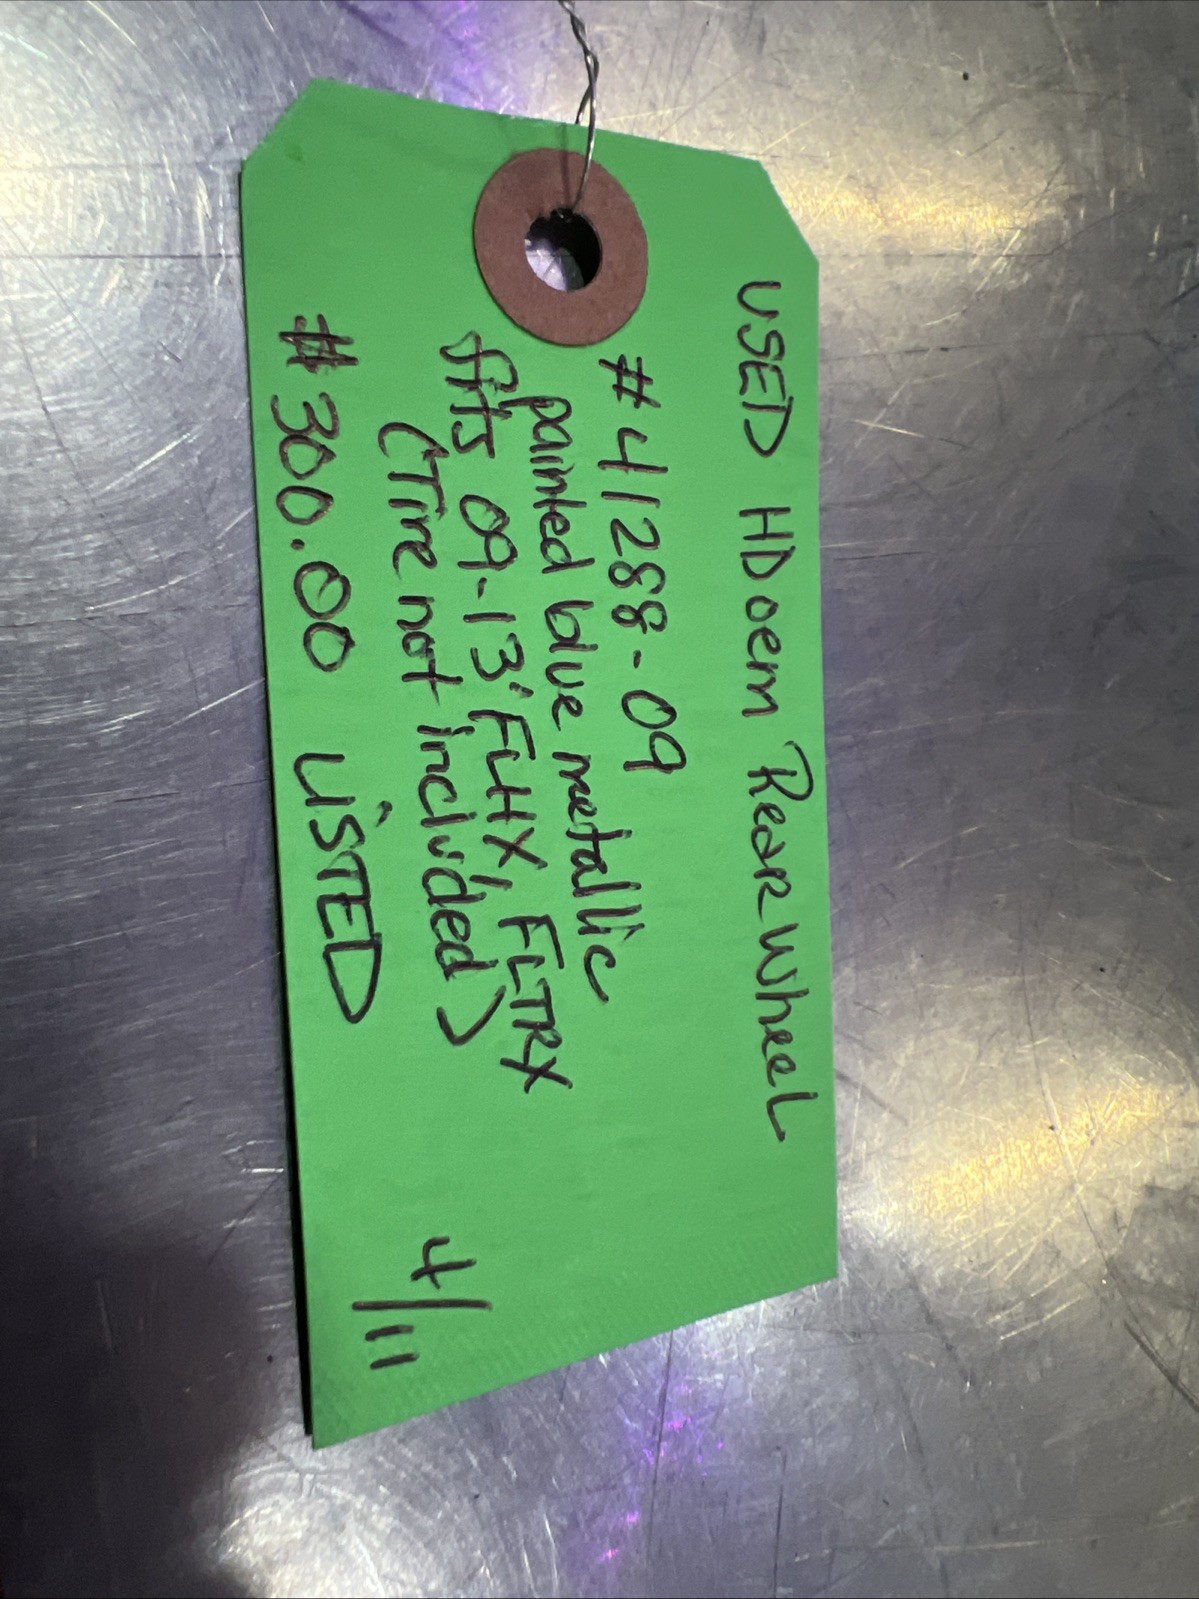 USED HD oem Rear Wheel
# 41288-09
painted blue metallic
fits 09-13' FLHX, FLTRX
(Tire not included)
# 300.00 LISTED
4/11